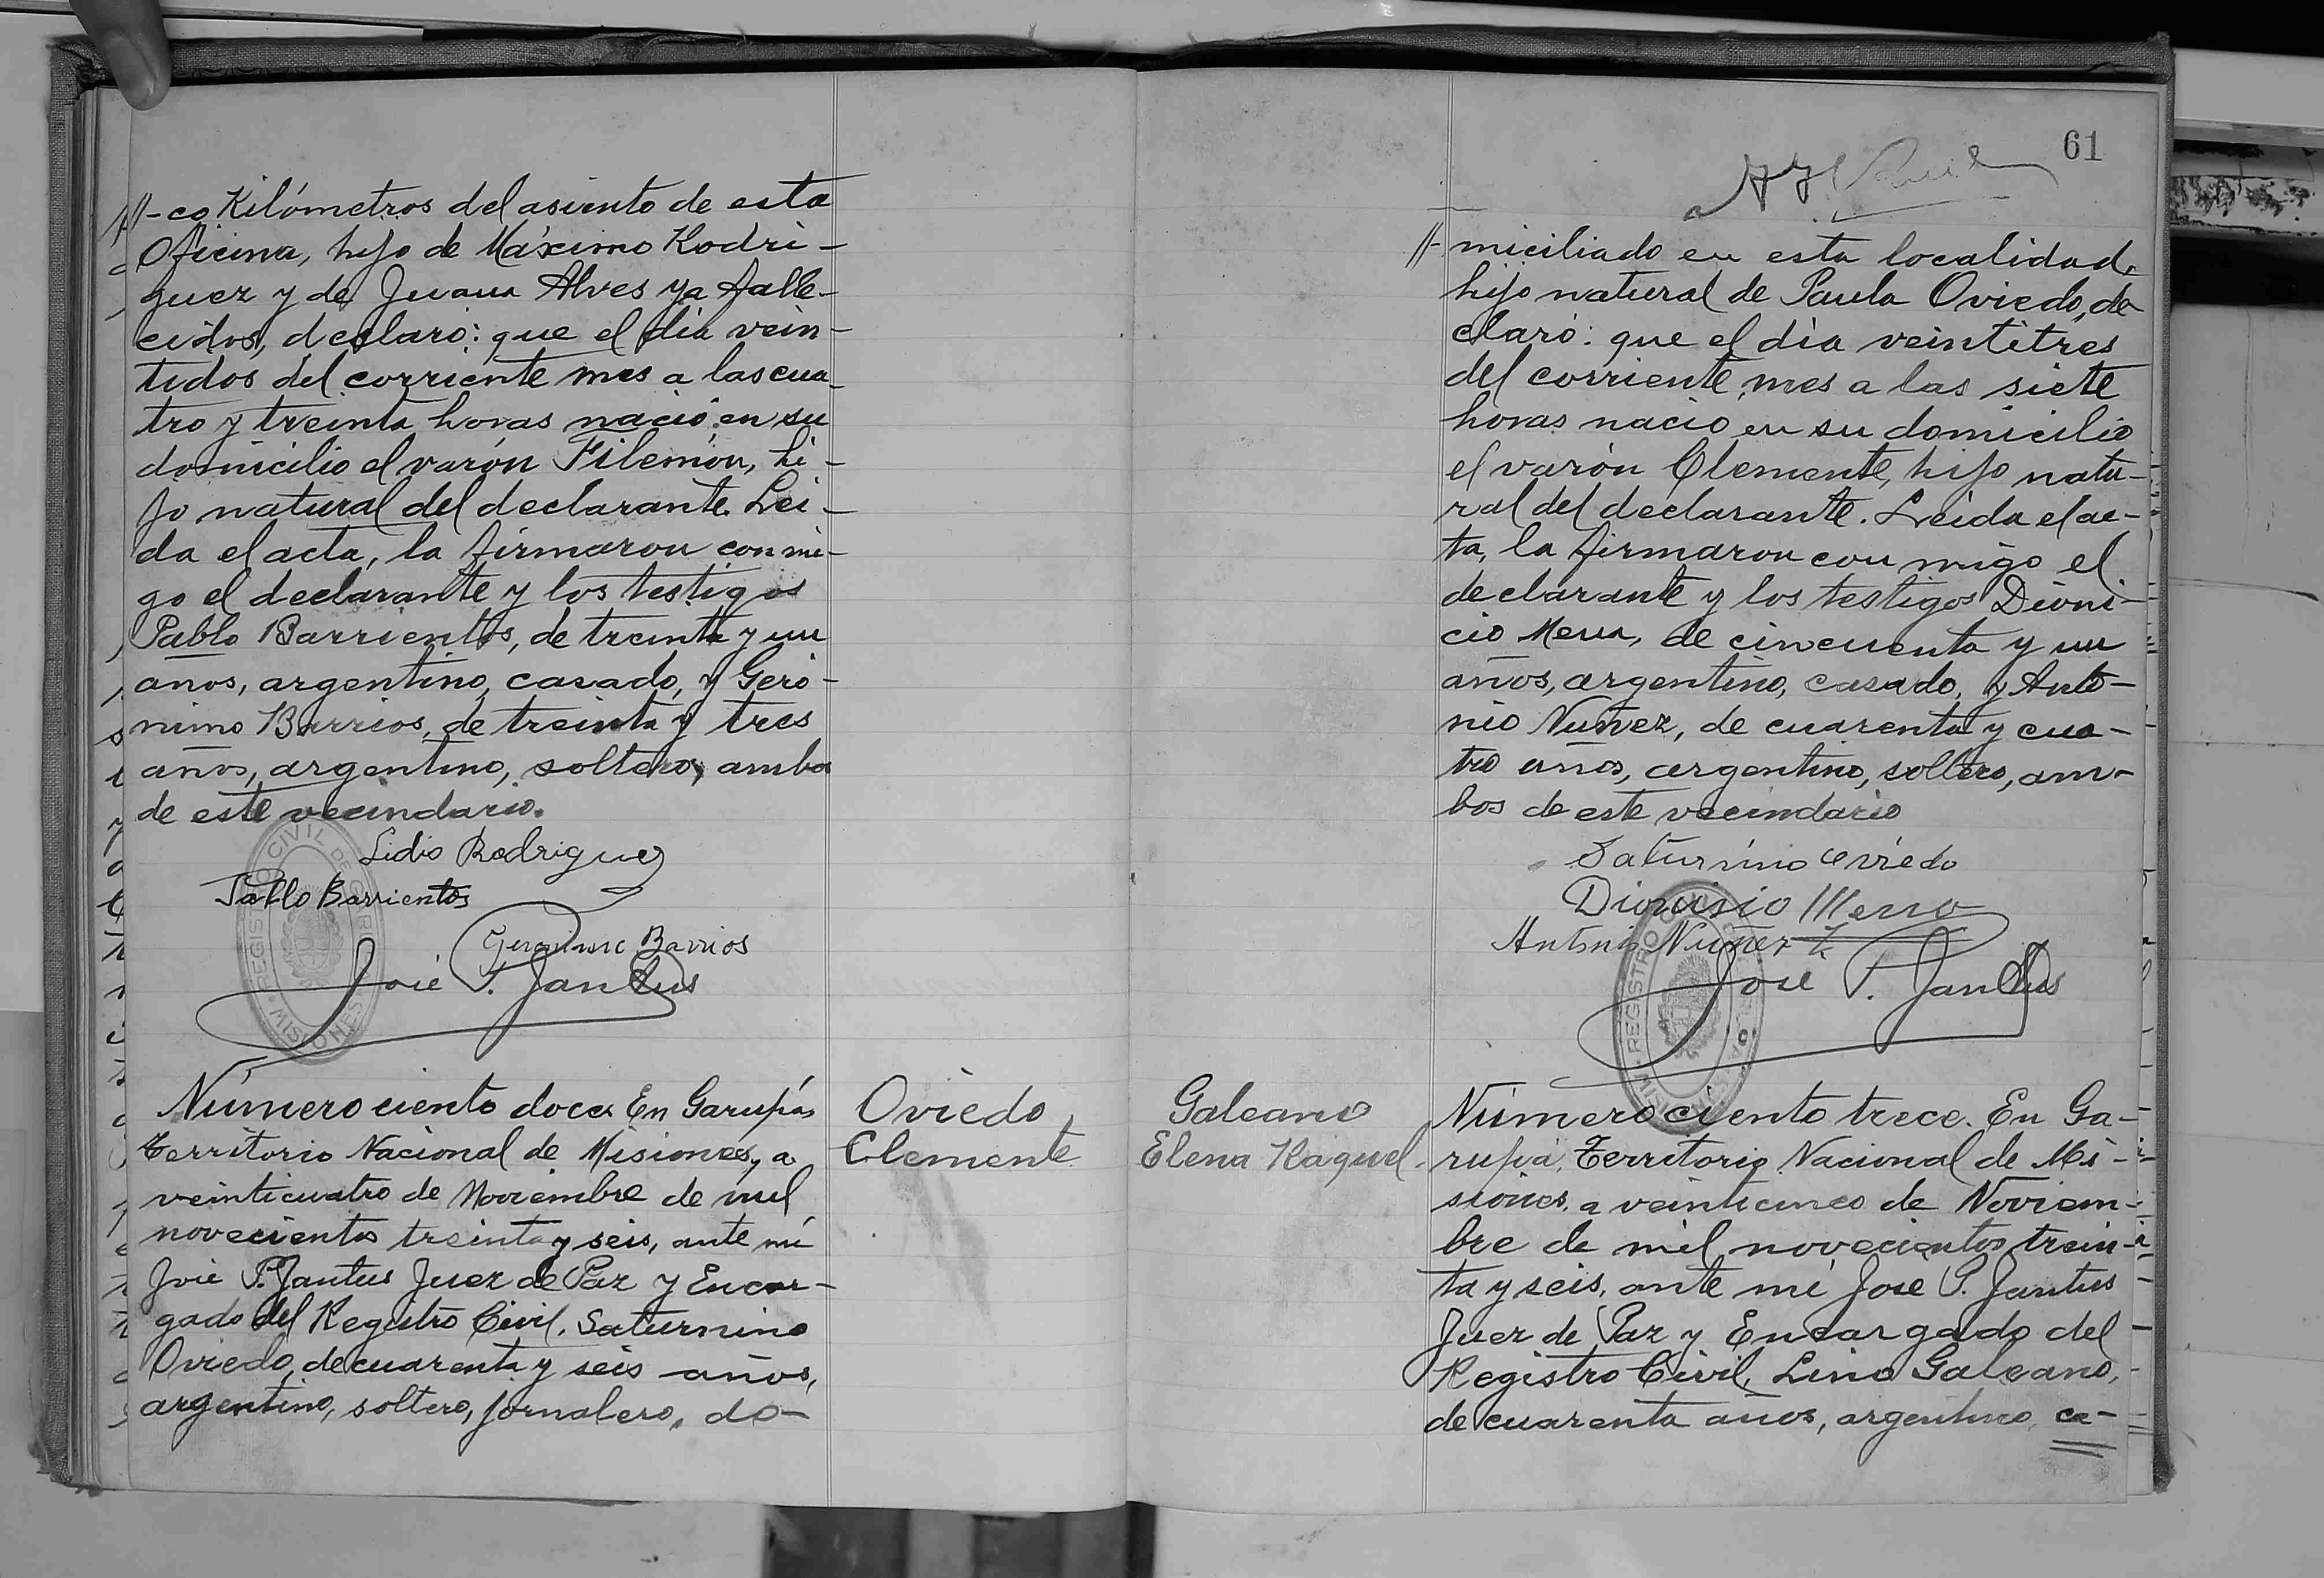 //-co Kilómetros del asiento de esta
Oficina, hijo de Máximo Rodri-
guez y de Juana Alves ya falle-
cidos, declaró: que el día vein-
tidos del corriente mes a las cua-
tro y treinta horas nació en su
domicilio el varón Filemón, hi-
jo natural del declarante. Lei-
da el acta, la firmaron conmi-
go el declarante y los testigos
Pablo Barrientos, de treinta y un
años, argentino, casado, y Geró-
nimo Barrios, de treinta y tres
años, argentino, soltero, ambos
de este vecindario.
Lidio Rodriguez
Pablo Barrientos
Geronimo Barrios
José P. Jantus
REGISTRO CIVIL DE
MISIONES
Número ciento doce. En Garupá,
Territorio Nacional de Misiones, a
veinticuatro de Noviembre de mil
novecientos treinta y seis, ante mí
José P. Jantus Juez de Paz y Encar-
gado del Registro Civil, Saturnino
Oviedo, de cuarenta y seis años,
argentino, soltero, jornalero, do-
Oviedo
Clemente
61
//-miciliado en esta localidad,
hijo natural de Paula Oviedo, de
claró: que el día veintitres
del corriente mes a las siete
horas nació en su domicilio
el varón Clemente, hijo natu-
ral del declarante. Leida el ac-
ta, la firmaron con migo el
declarante y los testigos Dioni-
cio Mena, de cincuenta y un
años, argentino, casado, y Anto-
nio Nuñez, de cuarenta y cua-
tro años, argentino, soltero, am-
bos de este vecindario
Saturnino Oviedo
Dionisio Mena
Antonio Nuñez
José P. Jantus
REGISTRO
MISIONES
Galeano
Elena Raquel
Número ciento trece. En Ga-
rupá, Territorio Nacional de Mi-
siones, a veinticinco de Noviem-
bre de mil novecientos trein-
ta y seis, ante mí José P. Jantus
Juez de Paz y Encargado del
Registro Civil, Lino Galeano,
de cuarenta años, argentino, ca-